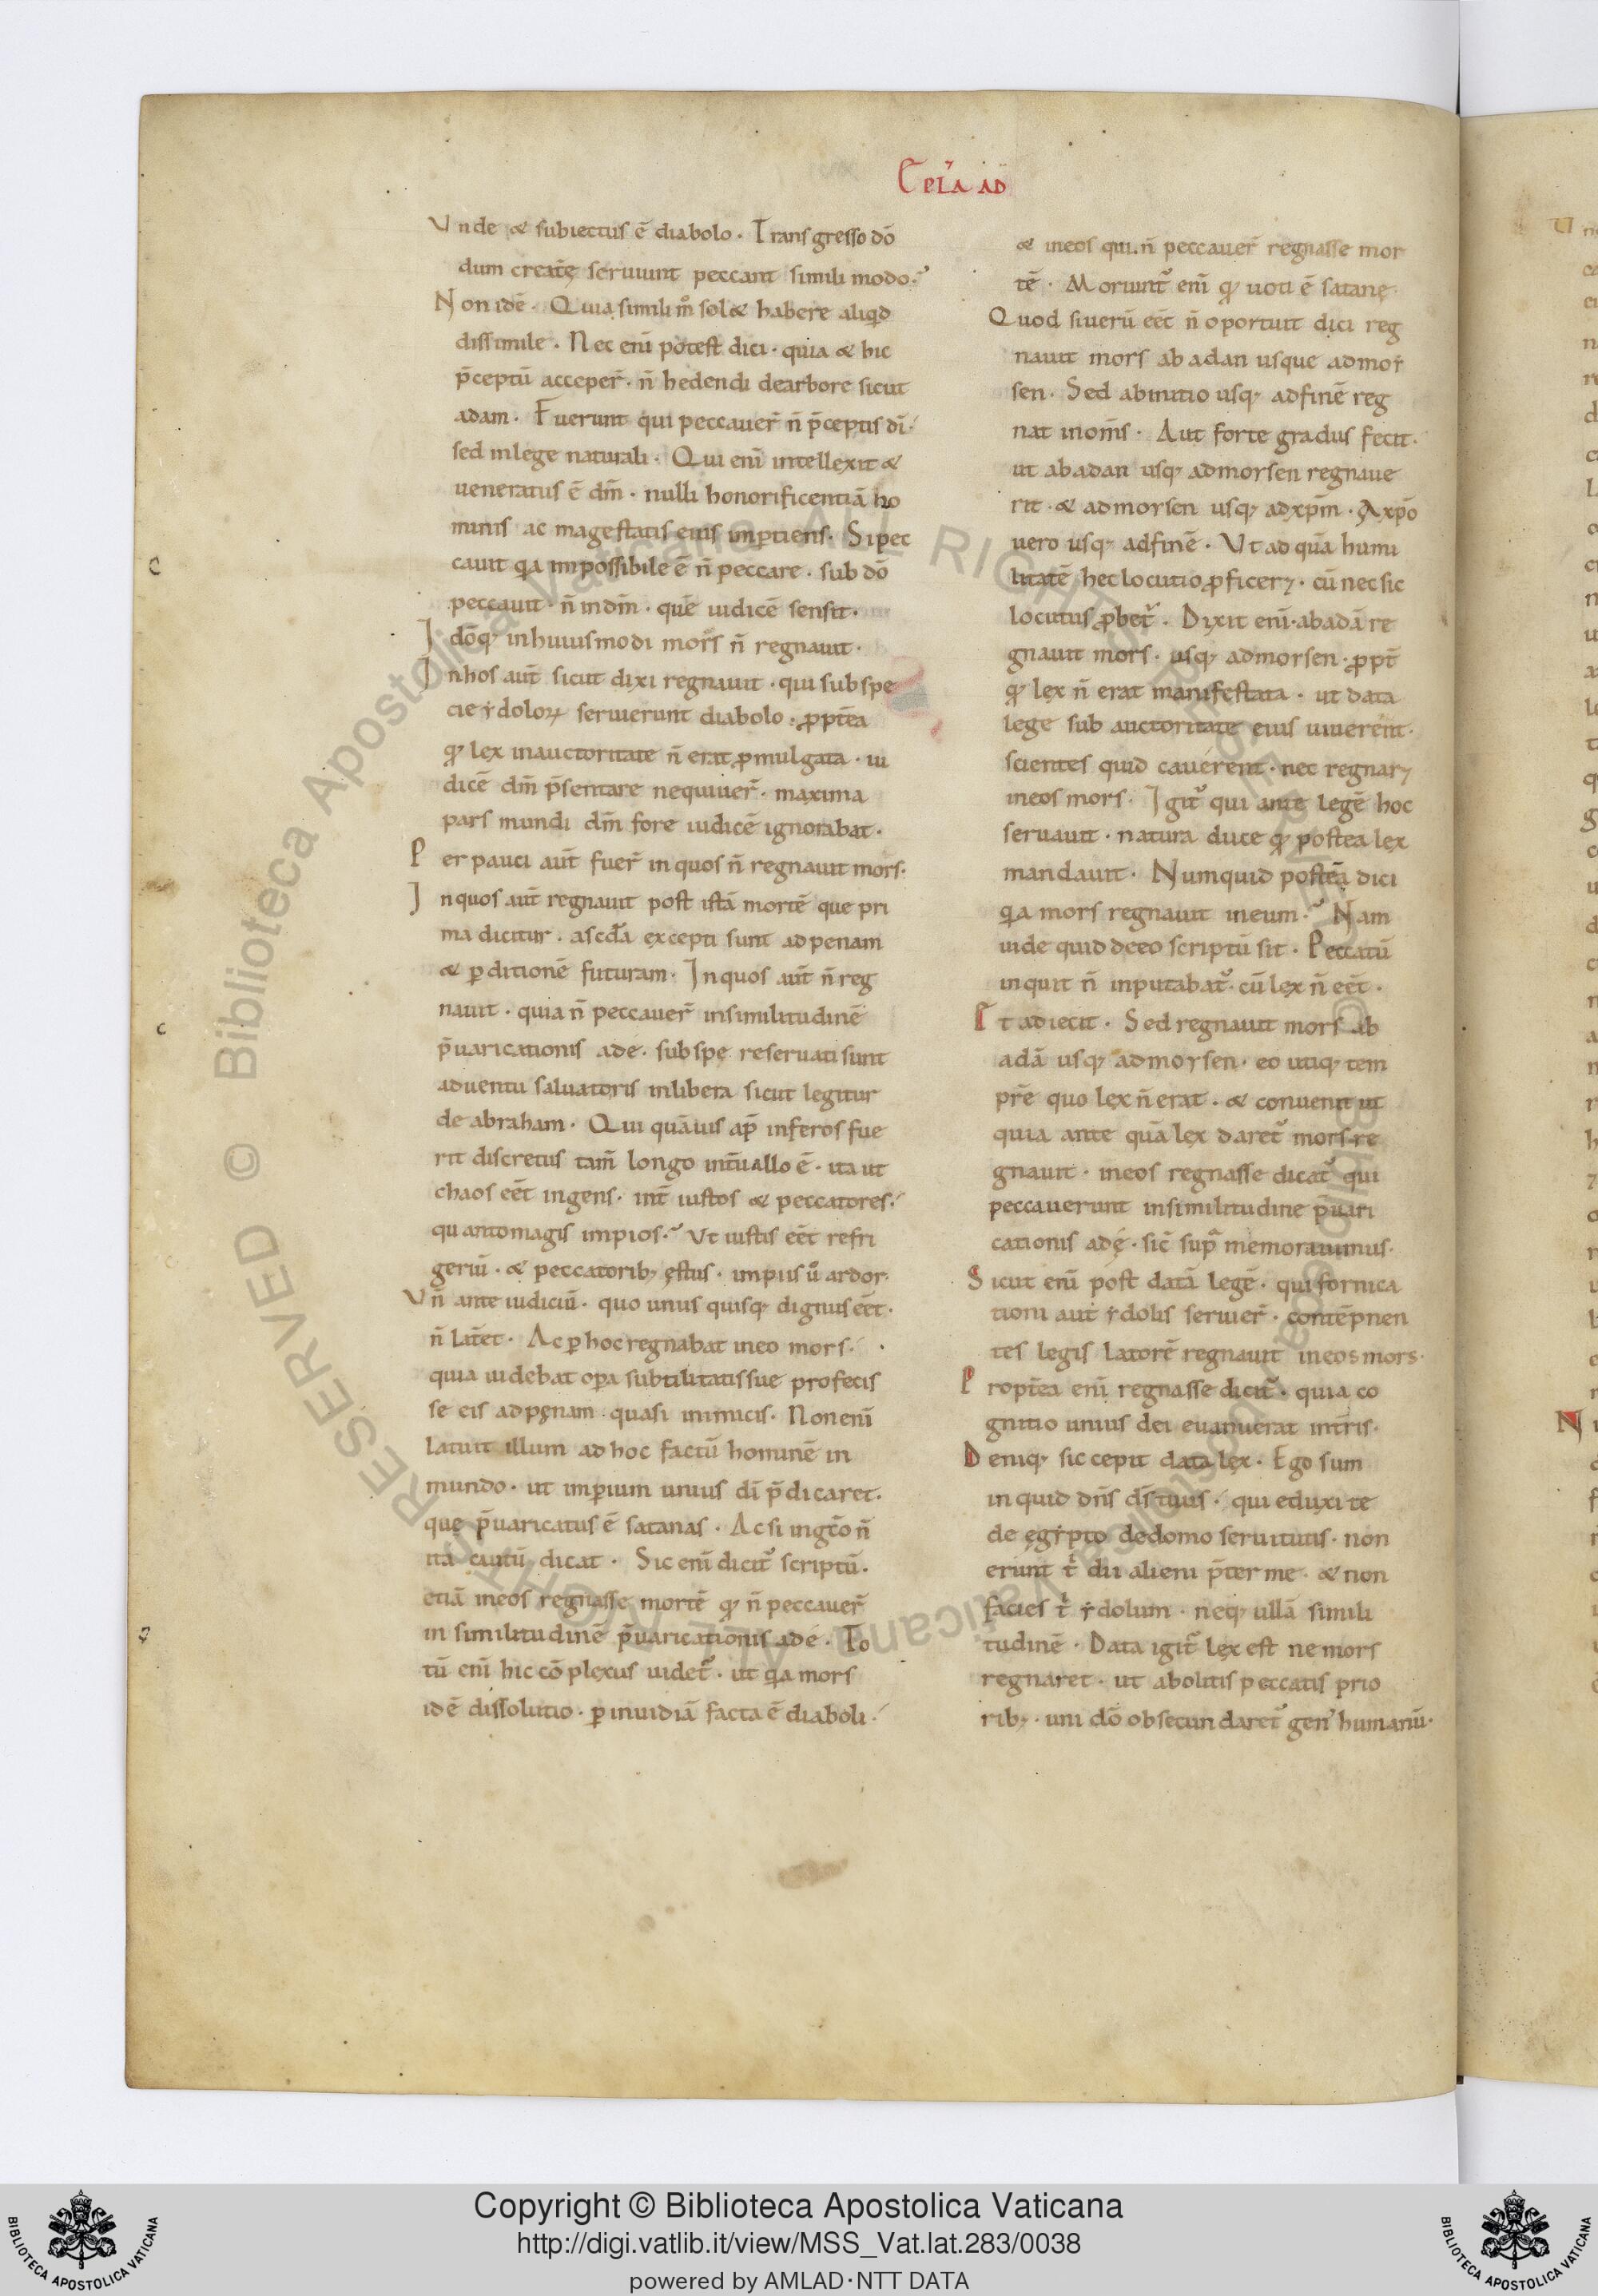 Epl'a ad
Vnde & subiectus ē diabolo. Transgresso dō
dum creatę seruiunt peccant simili modo.
Non idē. Quia simili m̊ sol& habere aliqd
dissimile. Nec eni potest dici. quia & hic
p̄ceptū acceper̄. n̄ hedendi dearbore sicut
adam. Fuerunt qui peccauer̄ n̄ p̄ceptis dī.
sed inlege naturali. Qui eni intellexit &
ueneratus ē dm̄. nulli honorificentiā ho
minis ac magestatis eius imꝑtiens. Si pec
cauit qa impossibile ē n̄ peccare. sub dō
peccauit. n̄ in dm̄. quē iudicē sensit.
Idōq; inhuiusmodi mors n̄ regnauit.
Inhos aut̄ sicut dixi regnauit. qui subspe
cie ẏdoloꝝ seruierunt diabolo. ꝓpt̄ea
qꝫ lex inauctoritate n̄ erat ꝓmulgata. iu
dicē dm̄ p̄sentare nequiuer̄. maxima
pars mundi dm̄ fore iudicē ignorabat.
Per pauci aut̄ fuer̄ in quos n̄ regnauit mors.
Inquos aut̄ regnauit post istā mortē que pri
ma dicitur. ascd̄a excepti sunt ad penam
& ꝑditionē futuram. Inquos aut̄ n̄ reg
nauit. quia n̄ peccauer̄ insimilitudinē
p̄uaricationis ade. subspe reseruati sunt
aduentu saluatoris inlibera sicut legitur
de abraham. Qui quāuis ap̄ inferos fue
rit discretus tam̄ longo int̄uallo ē. ita ut
chaos eēt ingens. int̄ iustos & peccatores.
quantomagis impios. Vt iustis eēt refri
geriū. & peccatorib; ęstus. impiis ů ardor.
Vn̄ ante iudiciū. quo unus quisq; dignus eēt.
n̄ lat̄et. Ac ꝑ hoc regnabat ineo mors.
quia uidebat oꝑa subtilitatis sue profecis
se eis adpęnam. quasi inimicis. Non enī
latuit illum ad hoc factū hominē in
mundo. ut imꝑium unius dī p̄dicaret.
que p̄uaricatus ē satanas. Ac si in gc̄o n̄
ita dicat. Sic enī dicit̉ scriptū.
etiā ineos regnasse mortē qꝫ n̄ peccauer̄
in similitudinē p̄uaricationis adę. To
tū enī hic cōplexus uidet̉. ut qa mors
idē dissolutio. ꝑ inuidiā facta ē diaboli.
& ineos qui n̄ peccauer̄ regnasse mor
tē. Moriunt̉ enī qꝫ uoti ē satanę.
Quod si uerū eēt n̄ oportuit dici reg
nauit mors ab adan usque admoẏ
sen. Sed abinitio usq; adfinē reg
nat inom̄s. Aut forte gradus fecit.
ut abadan usq; admoysen regnaue
rit. & admoysen usq; adxp̄m. Axp̄o
uero usq; adfinē. Vt ad quā humi
litatē hec locutio ꝓficer&. cū nec sic
locutus ꝓbet̉. Dixit enī. abadā re
gnauit mors. usq; admoysen. ꝓpt̄
qꝫ lex n̄ erat manifestata. ut data
lege sub auctoritate eius uiuerent.
scientes quid cauerent. nec regnar&
ineos mors. Igit̉ qui ante legē hoc
seruauit. natura duce qꝫ postea lex
mandauit. Numquid postea dici
qa mors regnauit ineum. Nam
uide quid deeo scriptū sit. Peccatū
inquit n̄ inputabat̉. cū lex n̄ eēt.
Et adiecit. Sed regnauit mors ab
adā usq; admoysen. eo utiq; tem
pr̄e quo lex n̄ erat. & conuenit ut
quia ante quā lex daret̉ mors re
gnauit. ineos regnasse dicat̉ qui
peccauerunt insimilitudine p̄uari
cationis adę. sic̄ sup̄ memorauimus.
Sicut enī post datā legē. qui fornica
tioni aut ẏdolis seruier̄. contēpnen
tes legis latorē regnauit ineosmors.
Propt̄ea enī regnasse dicit̉. quia co
gnitio unius dei euanuerat int̄ris.
Deniq; sic cepit data lex. Ego sum
inquid dn̄s dс̄ tuus. qui eduxi te
de ęgẏpto dedomo seruitutis. non
erunt t̉ dii alieni p̄ter me. & non
facies t̉ ẏdolum. neq; ullā simili
tudinē. Data igit̉ lex est ne mors
regnaret. ut abolitis peccatis prio
rib;. uni dō obsecundaret̉ gen' humanū.
C
c
Copyright © Biblioteca Apostolica Vaticana
http://digi.vatlib.it/view/MSS_Vat.lat.283/0038
powered by AMLAD·NTT DATA
BIBLIOTECA APOSTOLICA VATICANA
BIBLIOTECA APOSTOLICA VATICANA